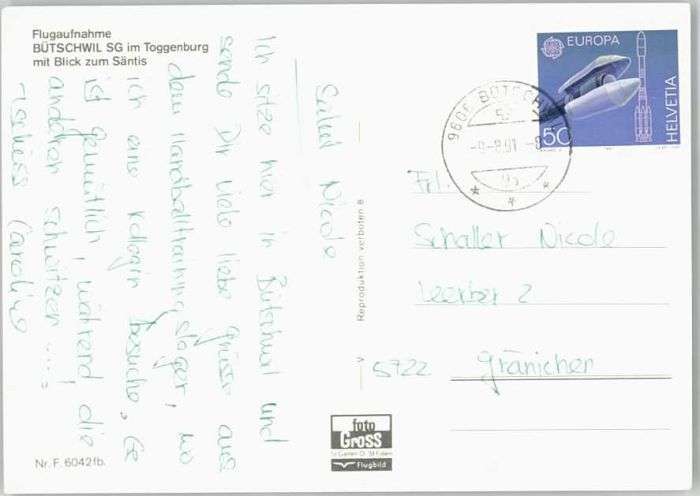 Flugaufnahme
BÜTSCHWIL SG im Toggenburg
mit Blick zum Säntis
Salut Nicole
Ich sitze hier in Bütschwil und
sende Dir viele liebe Grüsse aus
dem Handballtrainingslager, wo
ich eine Kollegin besuche. Es
ist gemütlich, während die
anderen schwitzen ....
Tschüss Caroline
Nr. F. 6042 fb.
Reproduktion verboten B
V
foto
Gross
St. Gallen
Flugbild
EUROPA
HELVETIA
50
9606 BÜTSCHWIL
-9-8.91-8
Frl.
Schaller Nicole
Leerber 2
5722 Gränichen